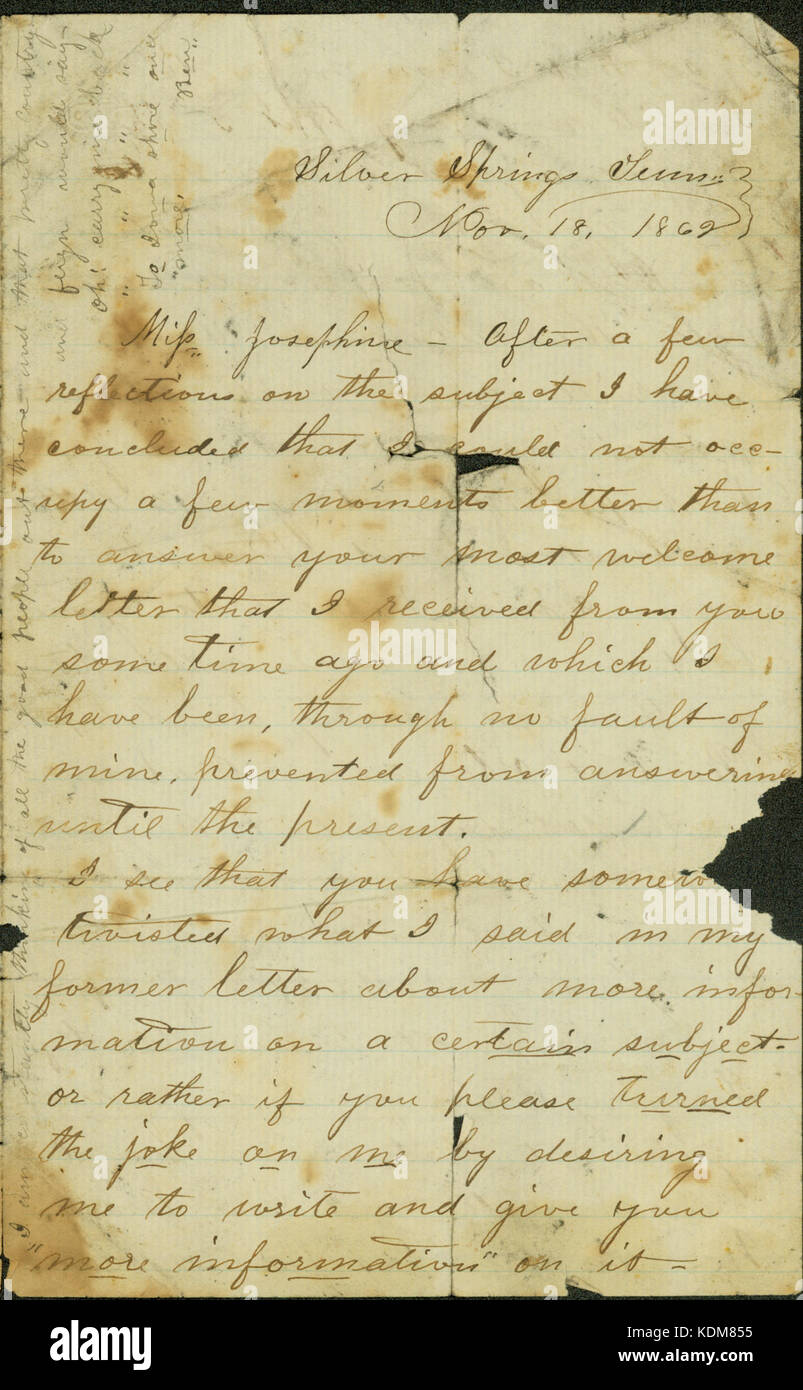 Silver Springs Tenn.
Nov. 18, 1862
Miss Josephine – After a few
reflections on the subject I have
concluded that I could not occ-
upy a few moments better than
to answer your most welcome
letter that I received from you
some time ago and which I
have been, through no fault of
mine, prevented from answering
until the present.
I see that you have somew
twisted what I said in my
former letter about more infor-
mation on a certain subject-
or rather if you please turned
the joke on me by desiring
me to write and give you
"more information" on it –
"I am constantly thinking of all the good people out there and that pretty country
and feign would say
Oh! carry me back
" " " "
To Iowa shore once
"more,"
Ben"
alamy
alamy stock photo
KDM855
www.alamy.com